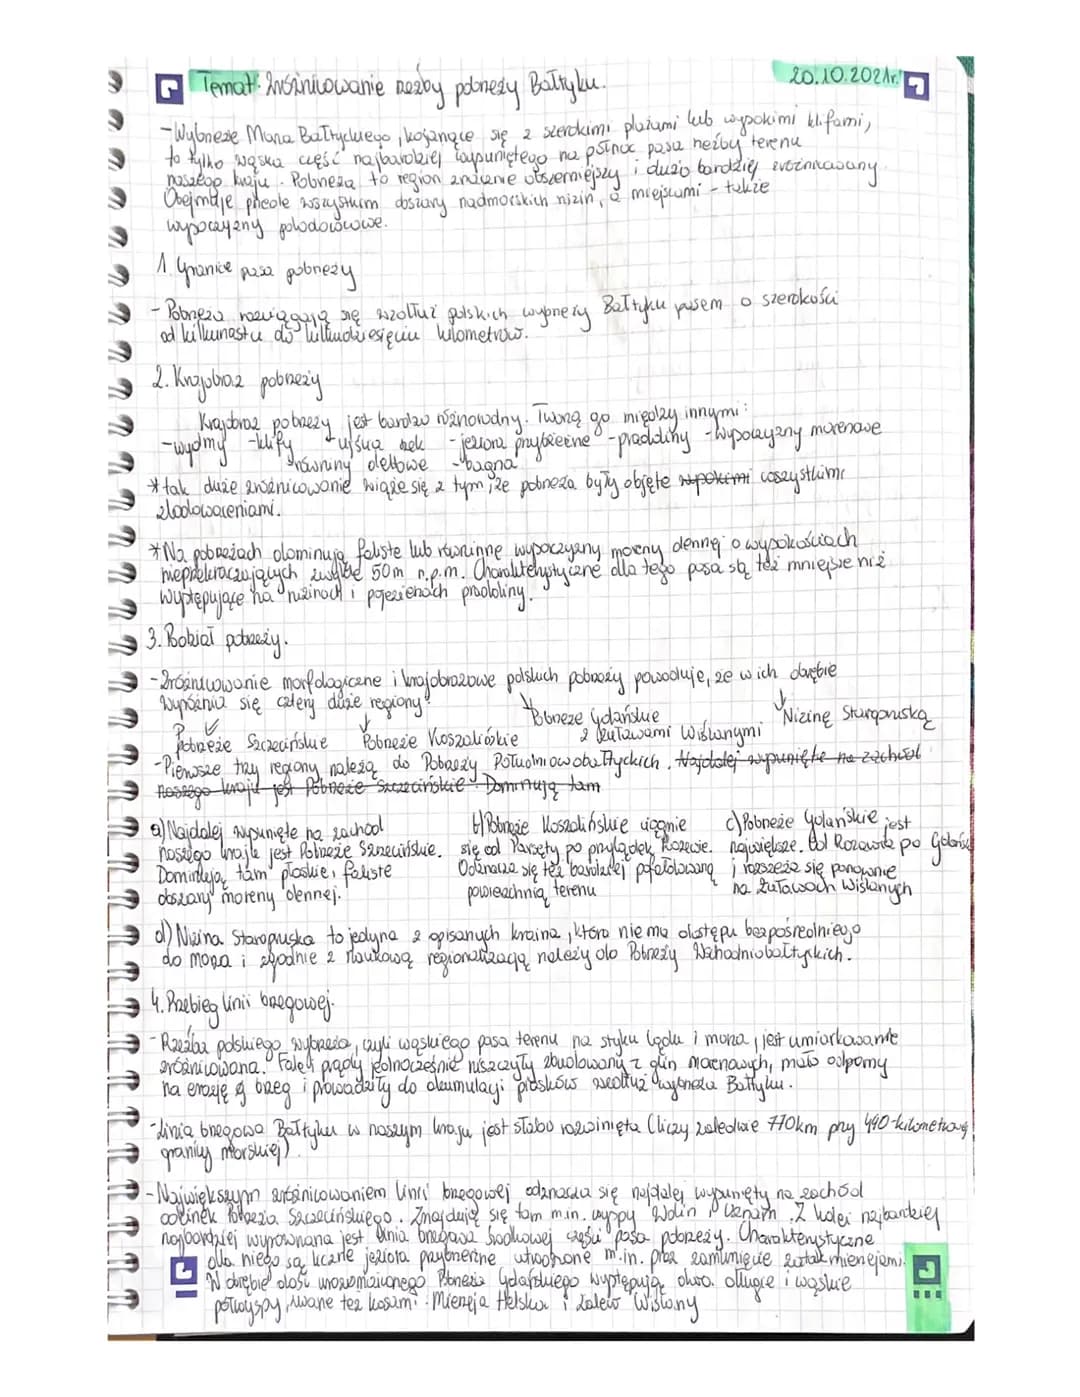 Temat: Zróżnicowanie rzeźby pobrzeży Bałtyku.
20.10.2021r.
-Wybrzeże Morza Bałtyckiego, kojarzące się z szerokimi plażami lub wysokimi klifami,
to tylko wąska część najbardziej wysuniętego na północ pasa rzeźby terenu
naszego kraju. Pobrzeża to region znacznie obszerniejszy i dużo bardziej zróżnicowany.
Obejmuje przede wszystkim obszary nadmorskich nizin, a miejscami - także
wysoczyzny polodowcowe.
1. Granice pasa pobrzeży
- Pobrzeża rozciągają się wzdłuż polskich wybrzeży Bałtyku pasem o szerokości
od kilkunastu do kilkudziesięciu kilometrów.
2. Krajobraz pobrzeży
Krajobraz pobrzeży jest bardzo różnorodny. Tworzą go między innymi:
-wydmy -klify -ujścia rzek -jeziora przybrzeżne -pradoliny -wysoczyzny morenowe
-równiny deltowe -bagna
*tak duże zróżnicowanie wiąże się z tym, że pobrzeża były objęte wszystkimi
zlodowaceniami.
*Na pobrzeżach dominują faliste lub równinne wysoczyzny moreny dennej o wysokościach
nieprzekraczających zwykle 50m n.p.m. Charakterystyczne dla tego pasa są też mniejsze niż
występujące na nizinach i pojezierzach pradoliny.
3. Podział pobrzeży.
-Zróżnicowanie morfologiczne i krajobrazowe polskich pobrzeży powoduje, że w ich obrębie
wyróżnia się cztery duże regiony:
Pobrzeże Szczecińskie Pobrzeże Koszalińskie Pobrzeże Gdańskie Nizinę Staropruską
z Żuławami Wiślanymi
-Pierwsze trzy regiony należą do Pobrzeży Południowobałtyckich. Najdalej wysunięte na zachód
naszego kraju jest Pobrzeże Szczecińskie. Dominują tam
a) Najdalej wysunięte na zachód
naszego kraju jest Pobrzeże Szczecińskie.
Dominują tam płaskie i faliste
obszary moreny dennej.
b) Pobrzeże Koszalińskie ciągnie
się od Parsęty po przylądek Rozewie.
Odznacza się też bardziej pofałdowaną
powierzchnią terenu
c) Pobrzeże Gdańskie jest
największe. Od Rozewia po Gdańsk
i rozszerza się ponownie
na Żuławach Wiślanych
d) Nizina Staropruska to jedyna z opisanych kraina, która nie ma dostępu bezpośredniego
do morza i zgodnie z naukową regionalizacją należy do Pobrzeży Wschodniobałtyckich.
4. Przebieg linii brzegowej.
-Rzeźba polskiego wybrzeża, czyli wąskiego pasa terenu na styku lądu i morza, jest umiarkowanie
zróżnicowana. Fale i prądy jednocześnie niszczyły zbudowany z glin morenowych, mało odporny
na erozję brzeg i prowadziły do akumulacji piasków wzdłuż wybrzeża Bałtyku.
-Linia brzegowa Bałtyku w naszym kraju jest słabo rozwinięta (liczy zaledwie 770km przy 440-kilometrowej
granicy morskiej)
-Największym zróżnicowaniem linii brzegowej odznacza się najdalej wysunięty na zachód
odcinek Pobrzeża Szczecińskiego. Znajdują się tam m.in. wyspy Wolin i Uznam. Z kolei najbardziej
najbardziej wyrównana jest linia brzegowa środkowej części pasa pobrzeży. Charakterystyczne
dla niego są liczne jeziora przybrzeżne utworzone m.in. przez zamknięcie zatok mierzejami.
W obrębie dość urozmaiconego Pobrzeża Gdańskiego występują dwa długie i wąskie
półwyspy, zwane też kosami: Mierzeja Helska i Zalew Wiślany